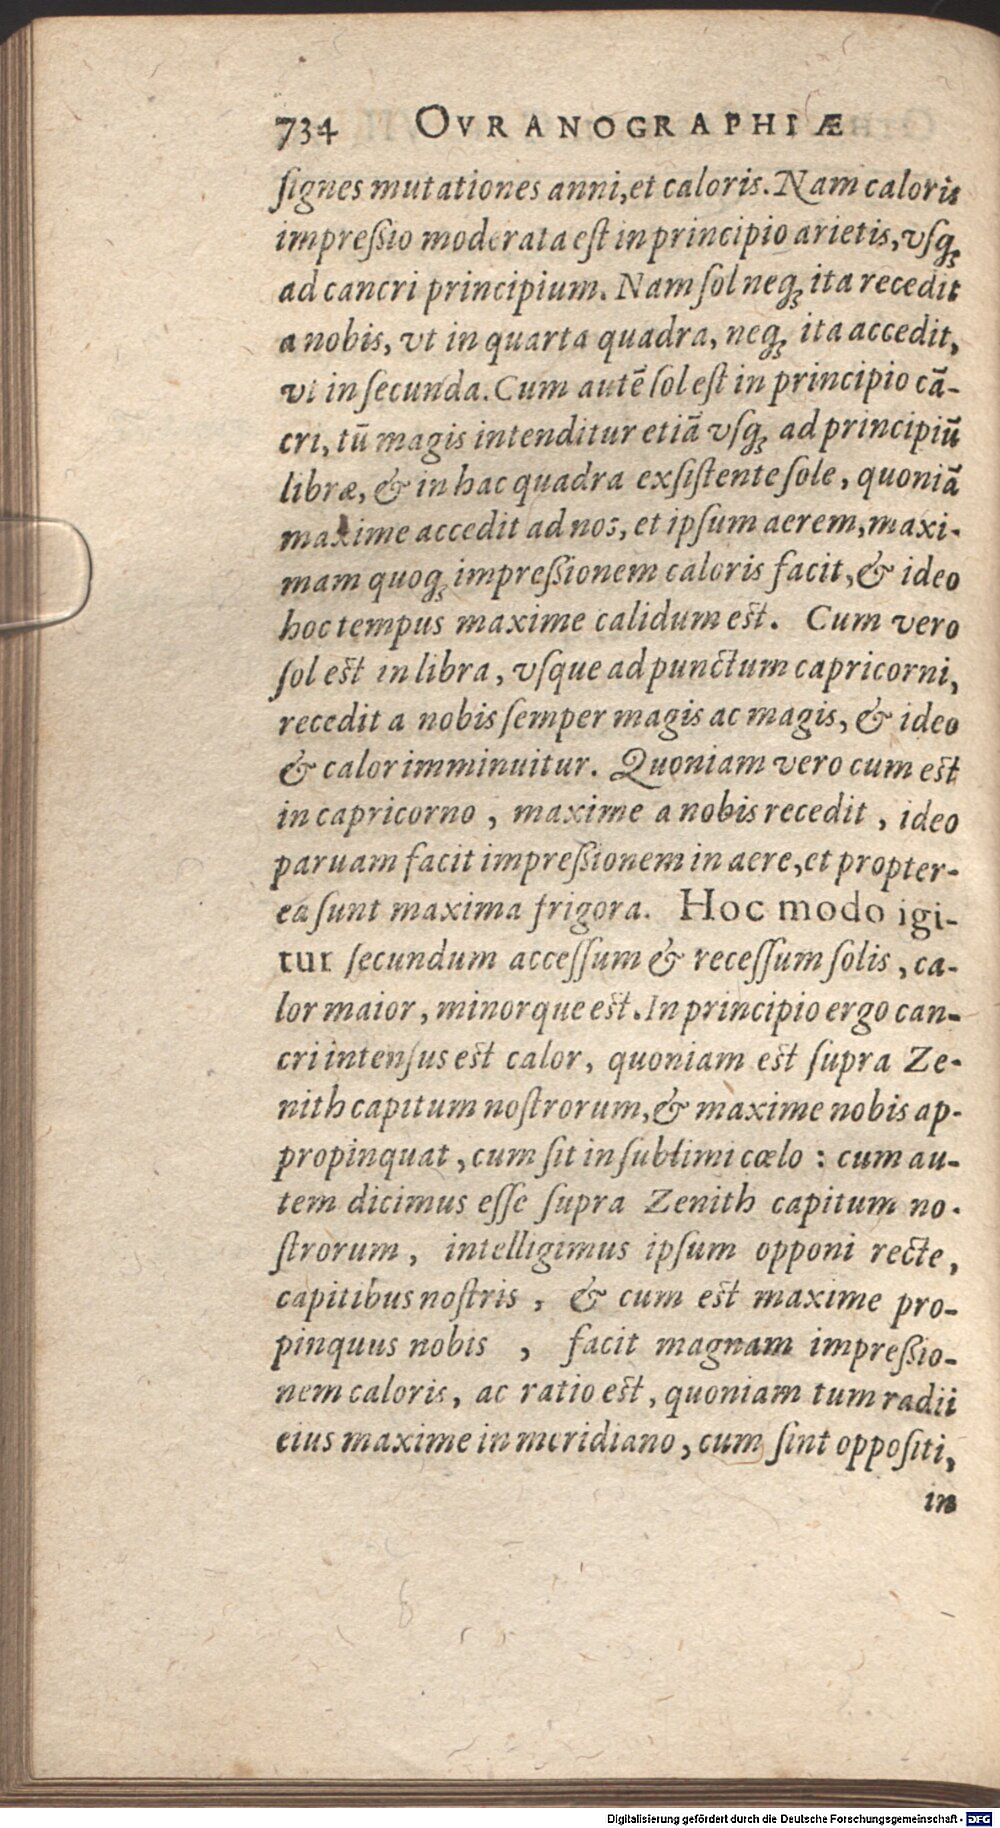 734 OVRANOGRAPHIÆ
ſignes mutationes anni, et caloris. Nam caloris
impreſsio moderata eſt in principio arietis, vſq́;
ad cancri principium. Nam ſol neq́; ita recedit
a nobis, vt in quarta quadra, neq́; ita accedit,
vt in ſecunda. Cum autē ſol eſt in principio cā-
cri, tū magis intenditur etiā vſq́; ad principiū
libræ, & in hac quadra exſiſtente ſole, quoniā
maxime accedit ad nos, et ipſum aerem, maxi-
mam quoq́; impreſsionem caloris facit, & ideo
hoc tempus maxime calidum eſt. Cum vero
ſol eſt in libra, vſque ad punctum capricorni,
recedit a nobis ſemper magis ac magis, & ideo
& calor imminuitur. Quoniam vero cum eſt
in capricorno, maxime a nobis recedit, ideo
paruam facit impreſsionem in aere, et propter-
ea ſunt maxima frigora. Hoc modo igi-
tur ſecundum acceſſum & receſſum ſolis, ca-
lor maior, minorque eſt. In principio ergo can-
cri intenſus eſt calor, quoniam eſt ſupra Ze-
nith capitum noſtrorum, & maxime nobis ap-
propinquat, cum ſit in ſublimi cœlo: cum au-
tem dicimus eſſe ſupra Zenith capitum no-
ſtrorum, intelligimus ipſum opponi recte,
capitibus noſtris, & cum eſt maxime pro-
pinquus nobis, facit magnam impreſsio-
nem caloris, ac ratio eſt, quoniam tum radii
eius maxime in meridiano, cum ſint oppoſiti,
in
Digitalisierung gefördert durch die Deutsche Forschungsgemeinschaft - DFG